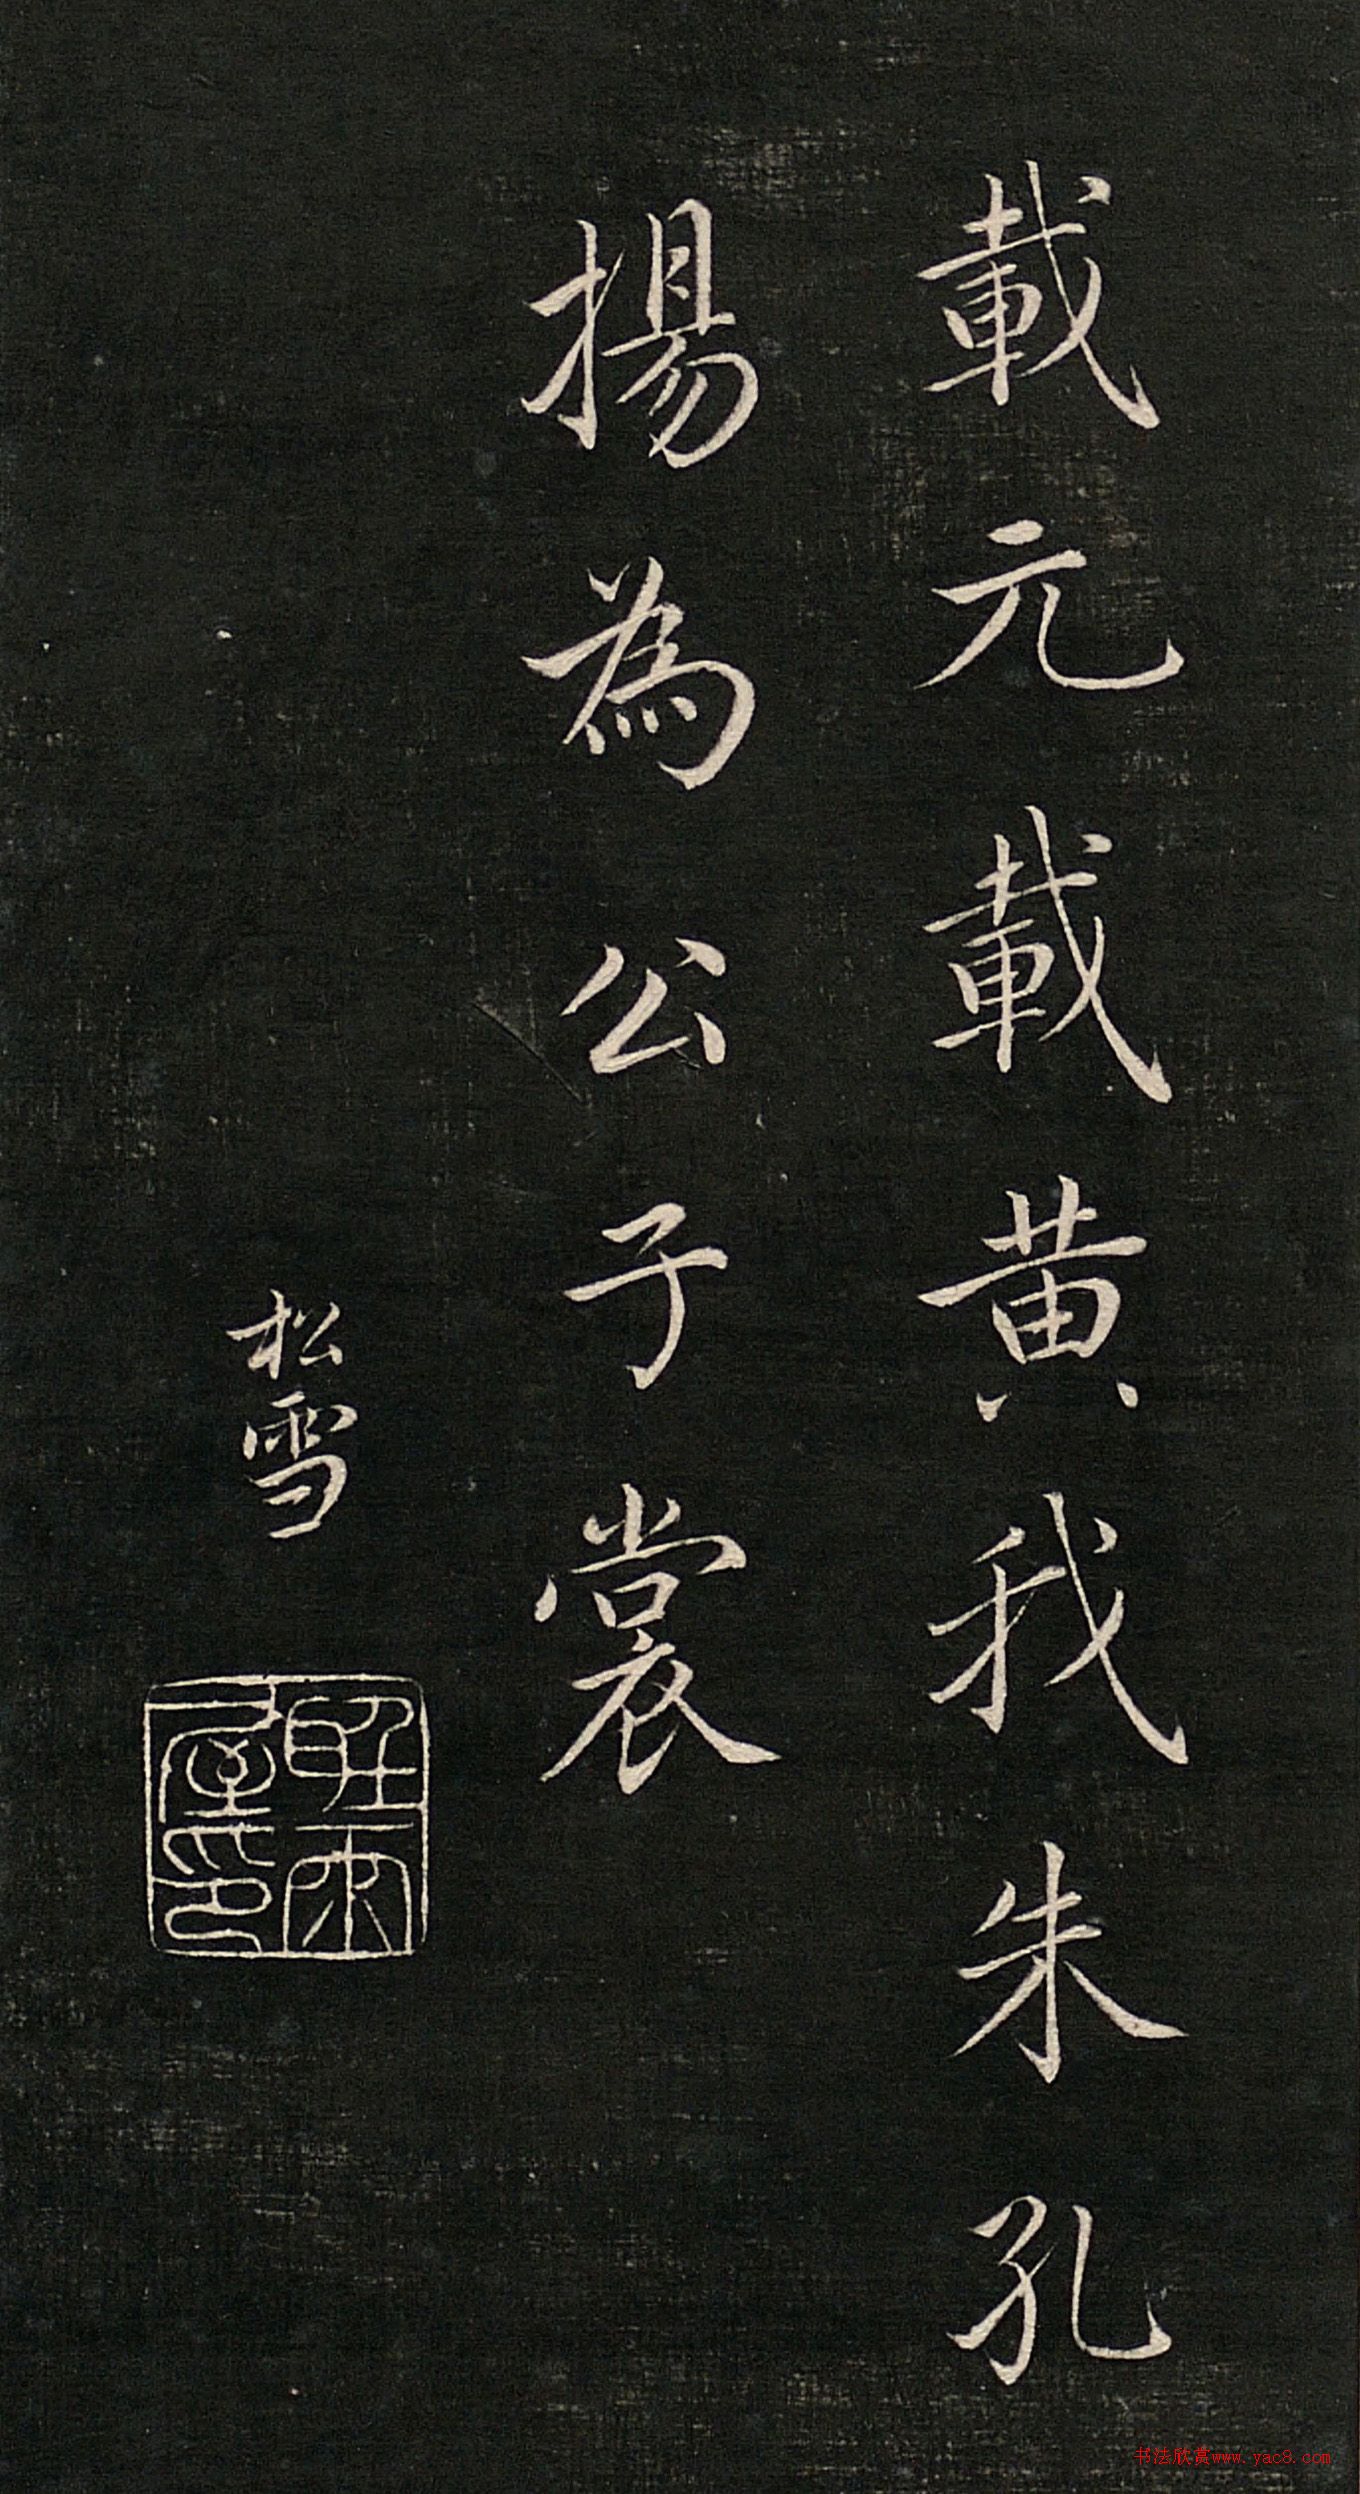 載元載黄我朱孔
揚為公子裳
松雪
雨
屋印
书法欣赏www.yac8.com